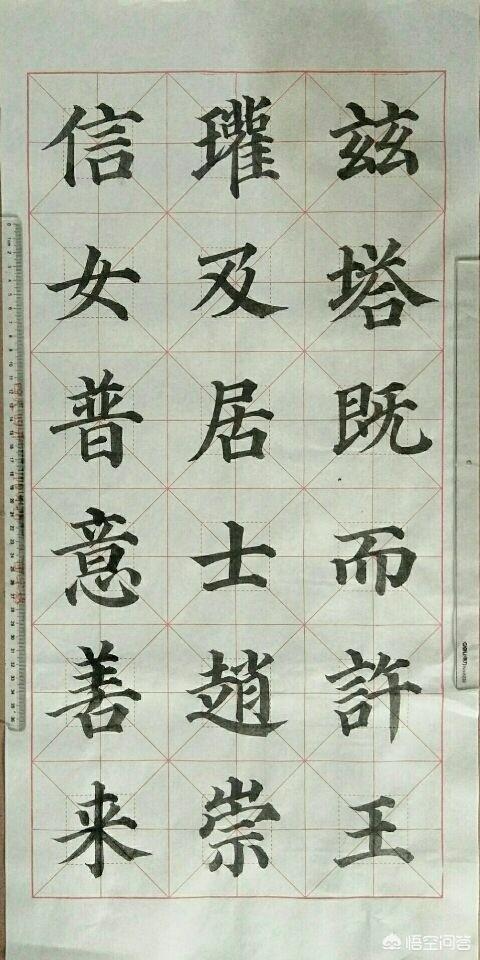 兹塔既而許王
瓘及居士趙崇
信女普意善来
悟空问答